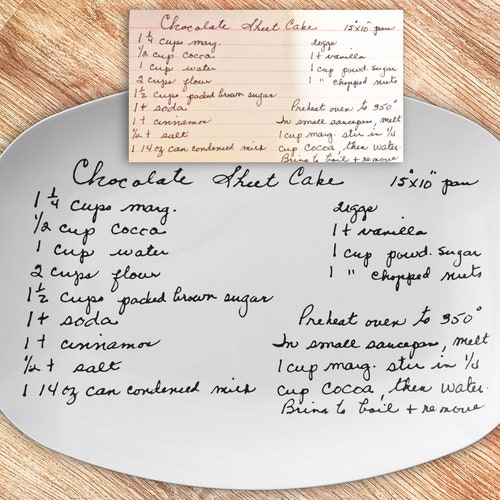 Chocolate Sheet Cake 15"x10" pan
1 1/4 cups marg.
1/2 cup cocoa
1 cup water
2 cups flour
1 1/2 cups packed brown sugar
1 t soda
1 t cinnamon
1/2 t salt
1 14oz can condensed milk
2eggs
1 t vanilla
1 cup powd. sugar
1 " chopped nuts
Preheat oven to 350°
In small saucepan, melt
1 cup marg. stir in 1/3
cup cocoa, then water
Bring to boil + remove
Chocolate Sheet Cake 15"x10" pan
1 1/4 cups marg.
1/2 cup cocoa
1 cup water
2 cups flour
1 1/2 cups packed brown sugar
1 t soda
1 t cinnamon
1/2 t salt
1 14 oz can condensed milk
2eggs
1 t vanilla
1 cup powd. sugar
1 " chopped nuts
Preheat oven to 350°
In small saucepan, melt
1 cup marg. stir in 1/3
cup cocoa, then water.
Bring to boil + remove